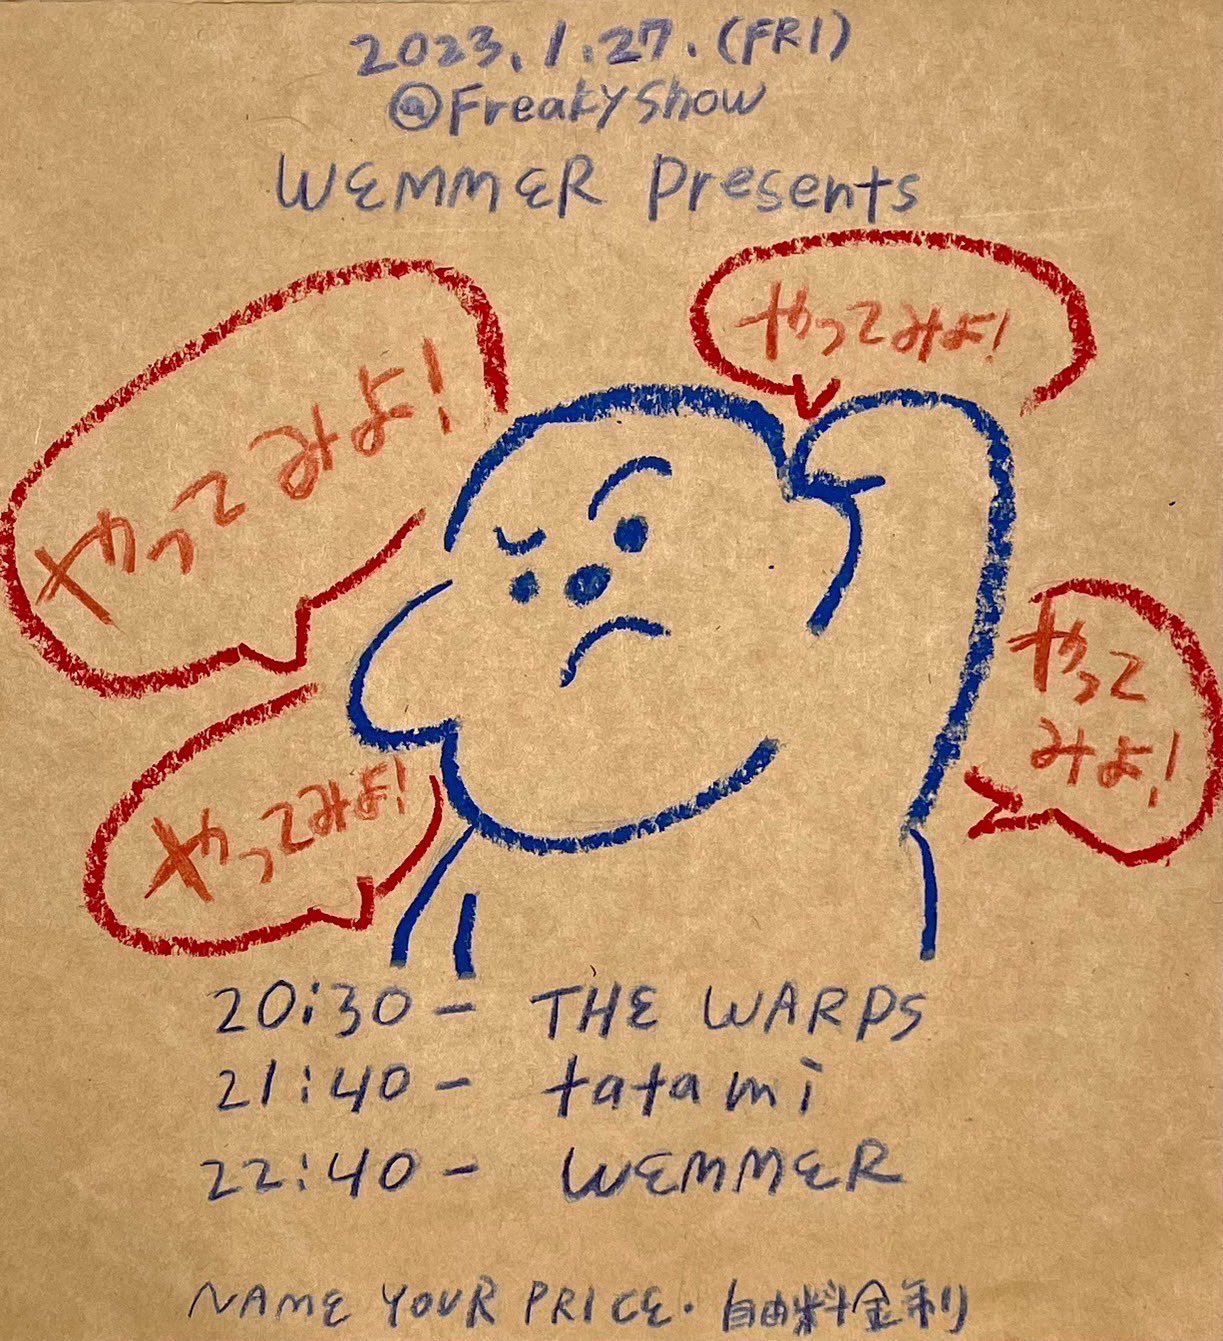 2023.1.27.(FRI)
@FreakyShow
WEMMER Presents
やってみよ!
やってみよ!
やって
みよ!
やってみよ!
20:30- THE WARPS
21:40- tatami
22:40- WEMMER
NAME YOUR PRICE・自由料金制